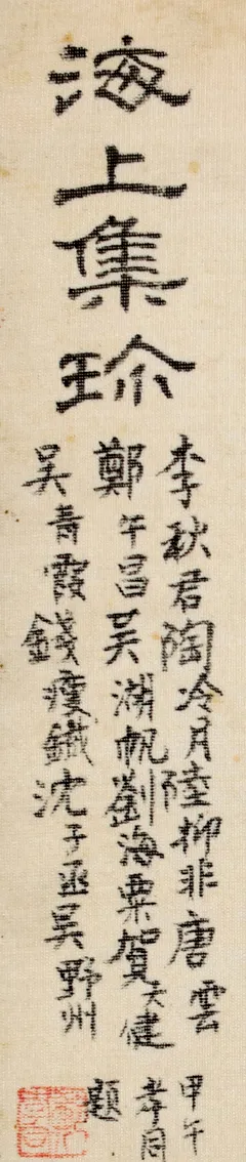 海上集珎
李秋君陶冷月陸抑非唐雲
鄭午昌吴湖帆劉海粟賀天健
吴青霞錢瘦鐵沈子丞吴野州
甲午
孝自
題